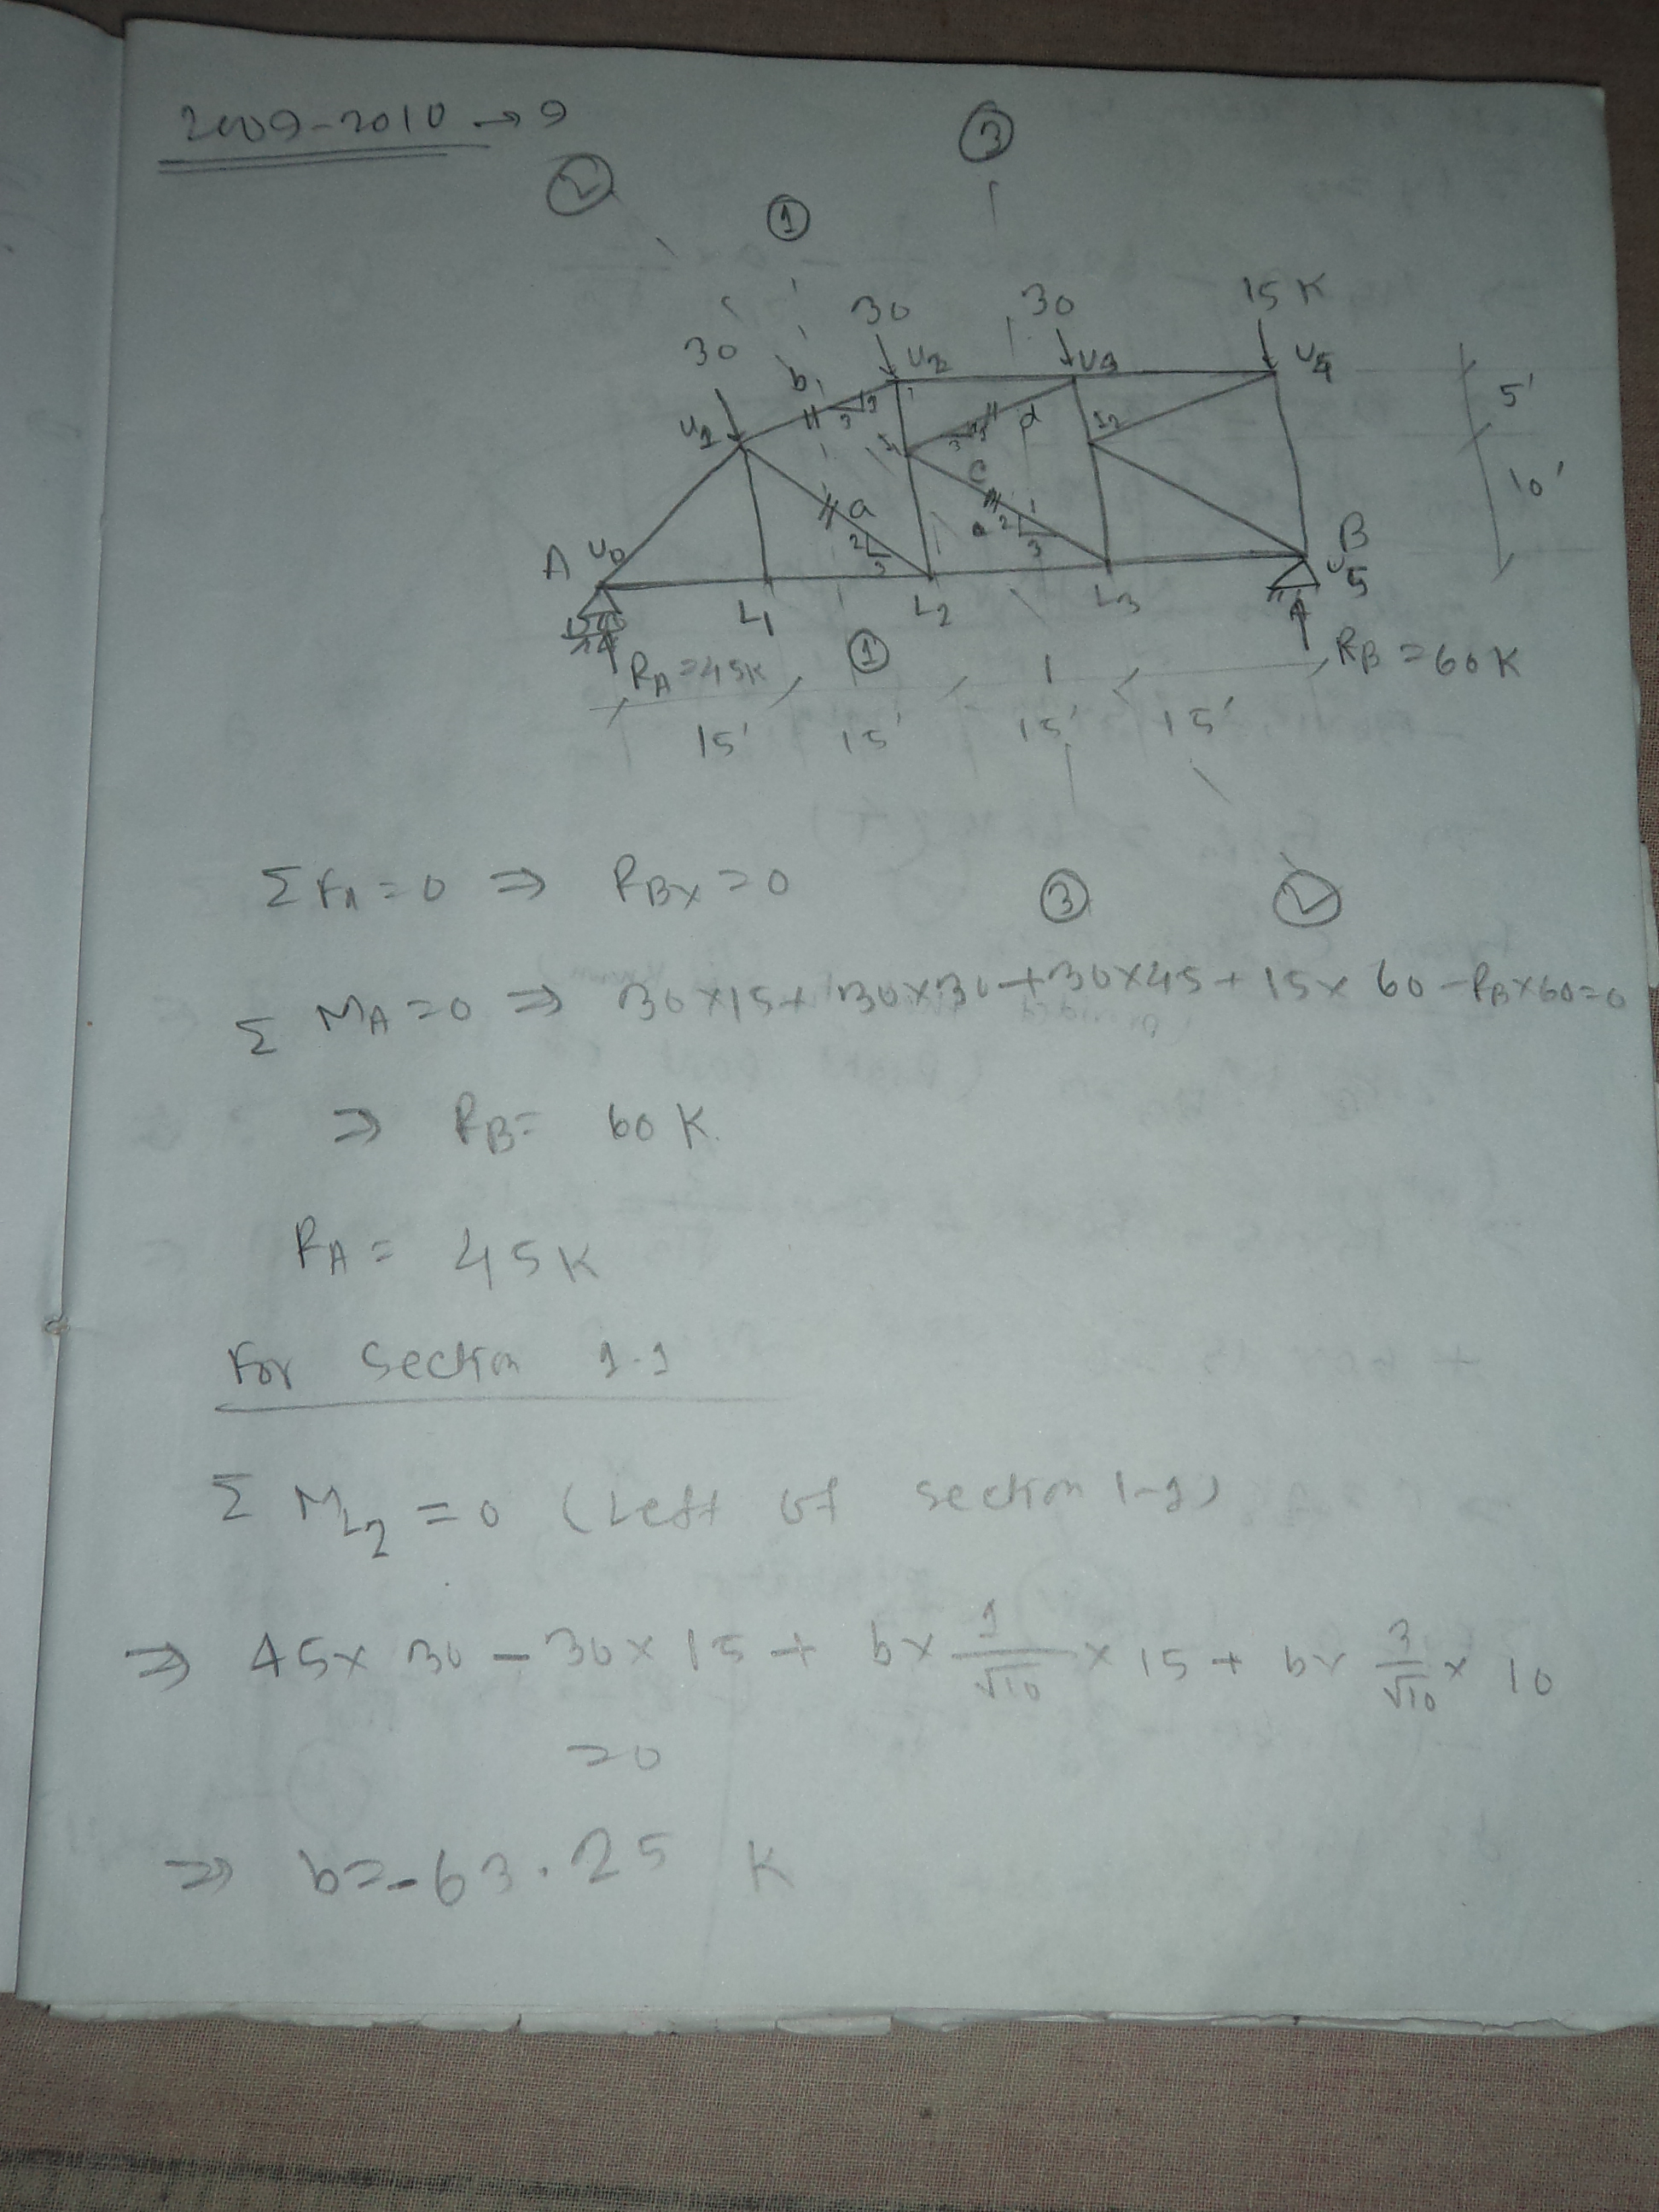 2009-2010 → 9
② ① ③
30 30 30 15 K
U1 b U2 U3 U4
1 3 1 3 d 5'
a c 10'
2 3 2 1 3
A U0 L1 L2 L3 B
U5
RA = 45K ① RB = 60 K
15' 15' 15' 15'
⇒ RBx = 0
③ ②
Σ MA = 0 ⇒ 30×15 + 30×30 + 30×45 + 15×60 - RB×60 = 0
⇒ RB = 60 K.
RA = 45K
For Section 1-1
Σ ML2 = 0 (Left of section 1-1)
⇒ 45×30 - 30×15 + b× 1/√10 ×15 + b× 3/√10 × 10
= 0
⇒ b = -63.25 K